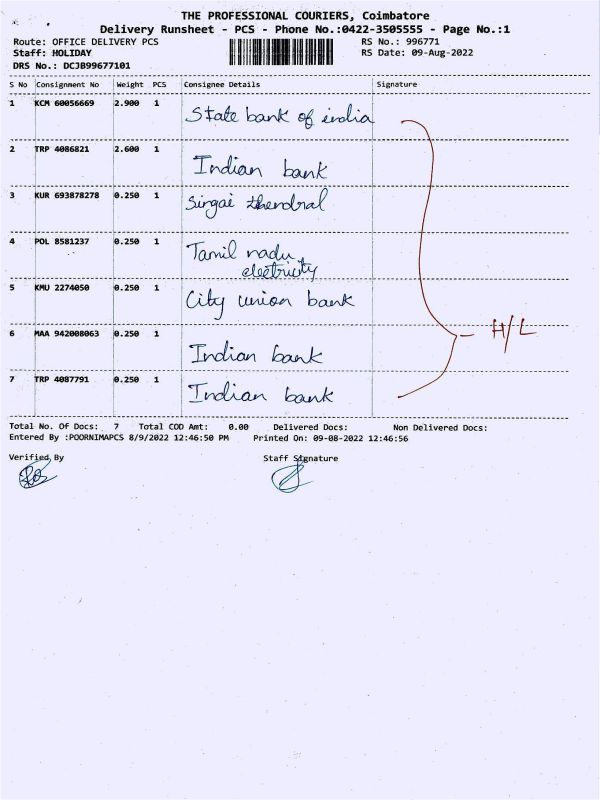 THE PROFESSIONAL COURIERS, Coimbatore
Delivery Runsheet - PCS - Phone No.:0422-3505555 - Page No.:1
Route: OFFICE DELIVERY PCS RS No.: 996771
Staff: HOLIDAY RS Date: 09-Aug-2022
DRS No.: DCJB99677101
S No Consignment No Weight PCS Consignee Details Signature
1 KCM 60056669 2.900 1 State bank of india
2 TRP 4086821 2.600 1 Indian bank
3 KUR 693878278 0.250 1 Singai thendral
4 POL 8581237 0.250 1 Tamil nadu
electricity
5 KMU 2274050 0.250 1 City union bank
H/L
6 MAA 942008063 0.250 1 Indian bank
7 TRP 4087791 0.250 1 Indian bank
Total No. Of Docs: 7 Total COD Amt: 0.00 Delivered Docs: Non Delivered Docs:
Entered By :POORNIMAPCS 8/9/2022 12:46:50 PM Printed On: 09-08-2022 12:46:56
Verified By Staff Signature